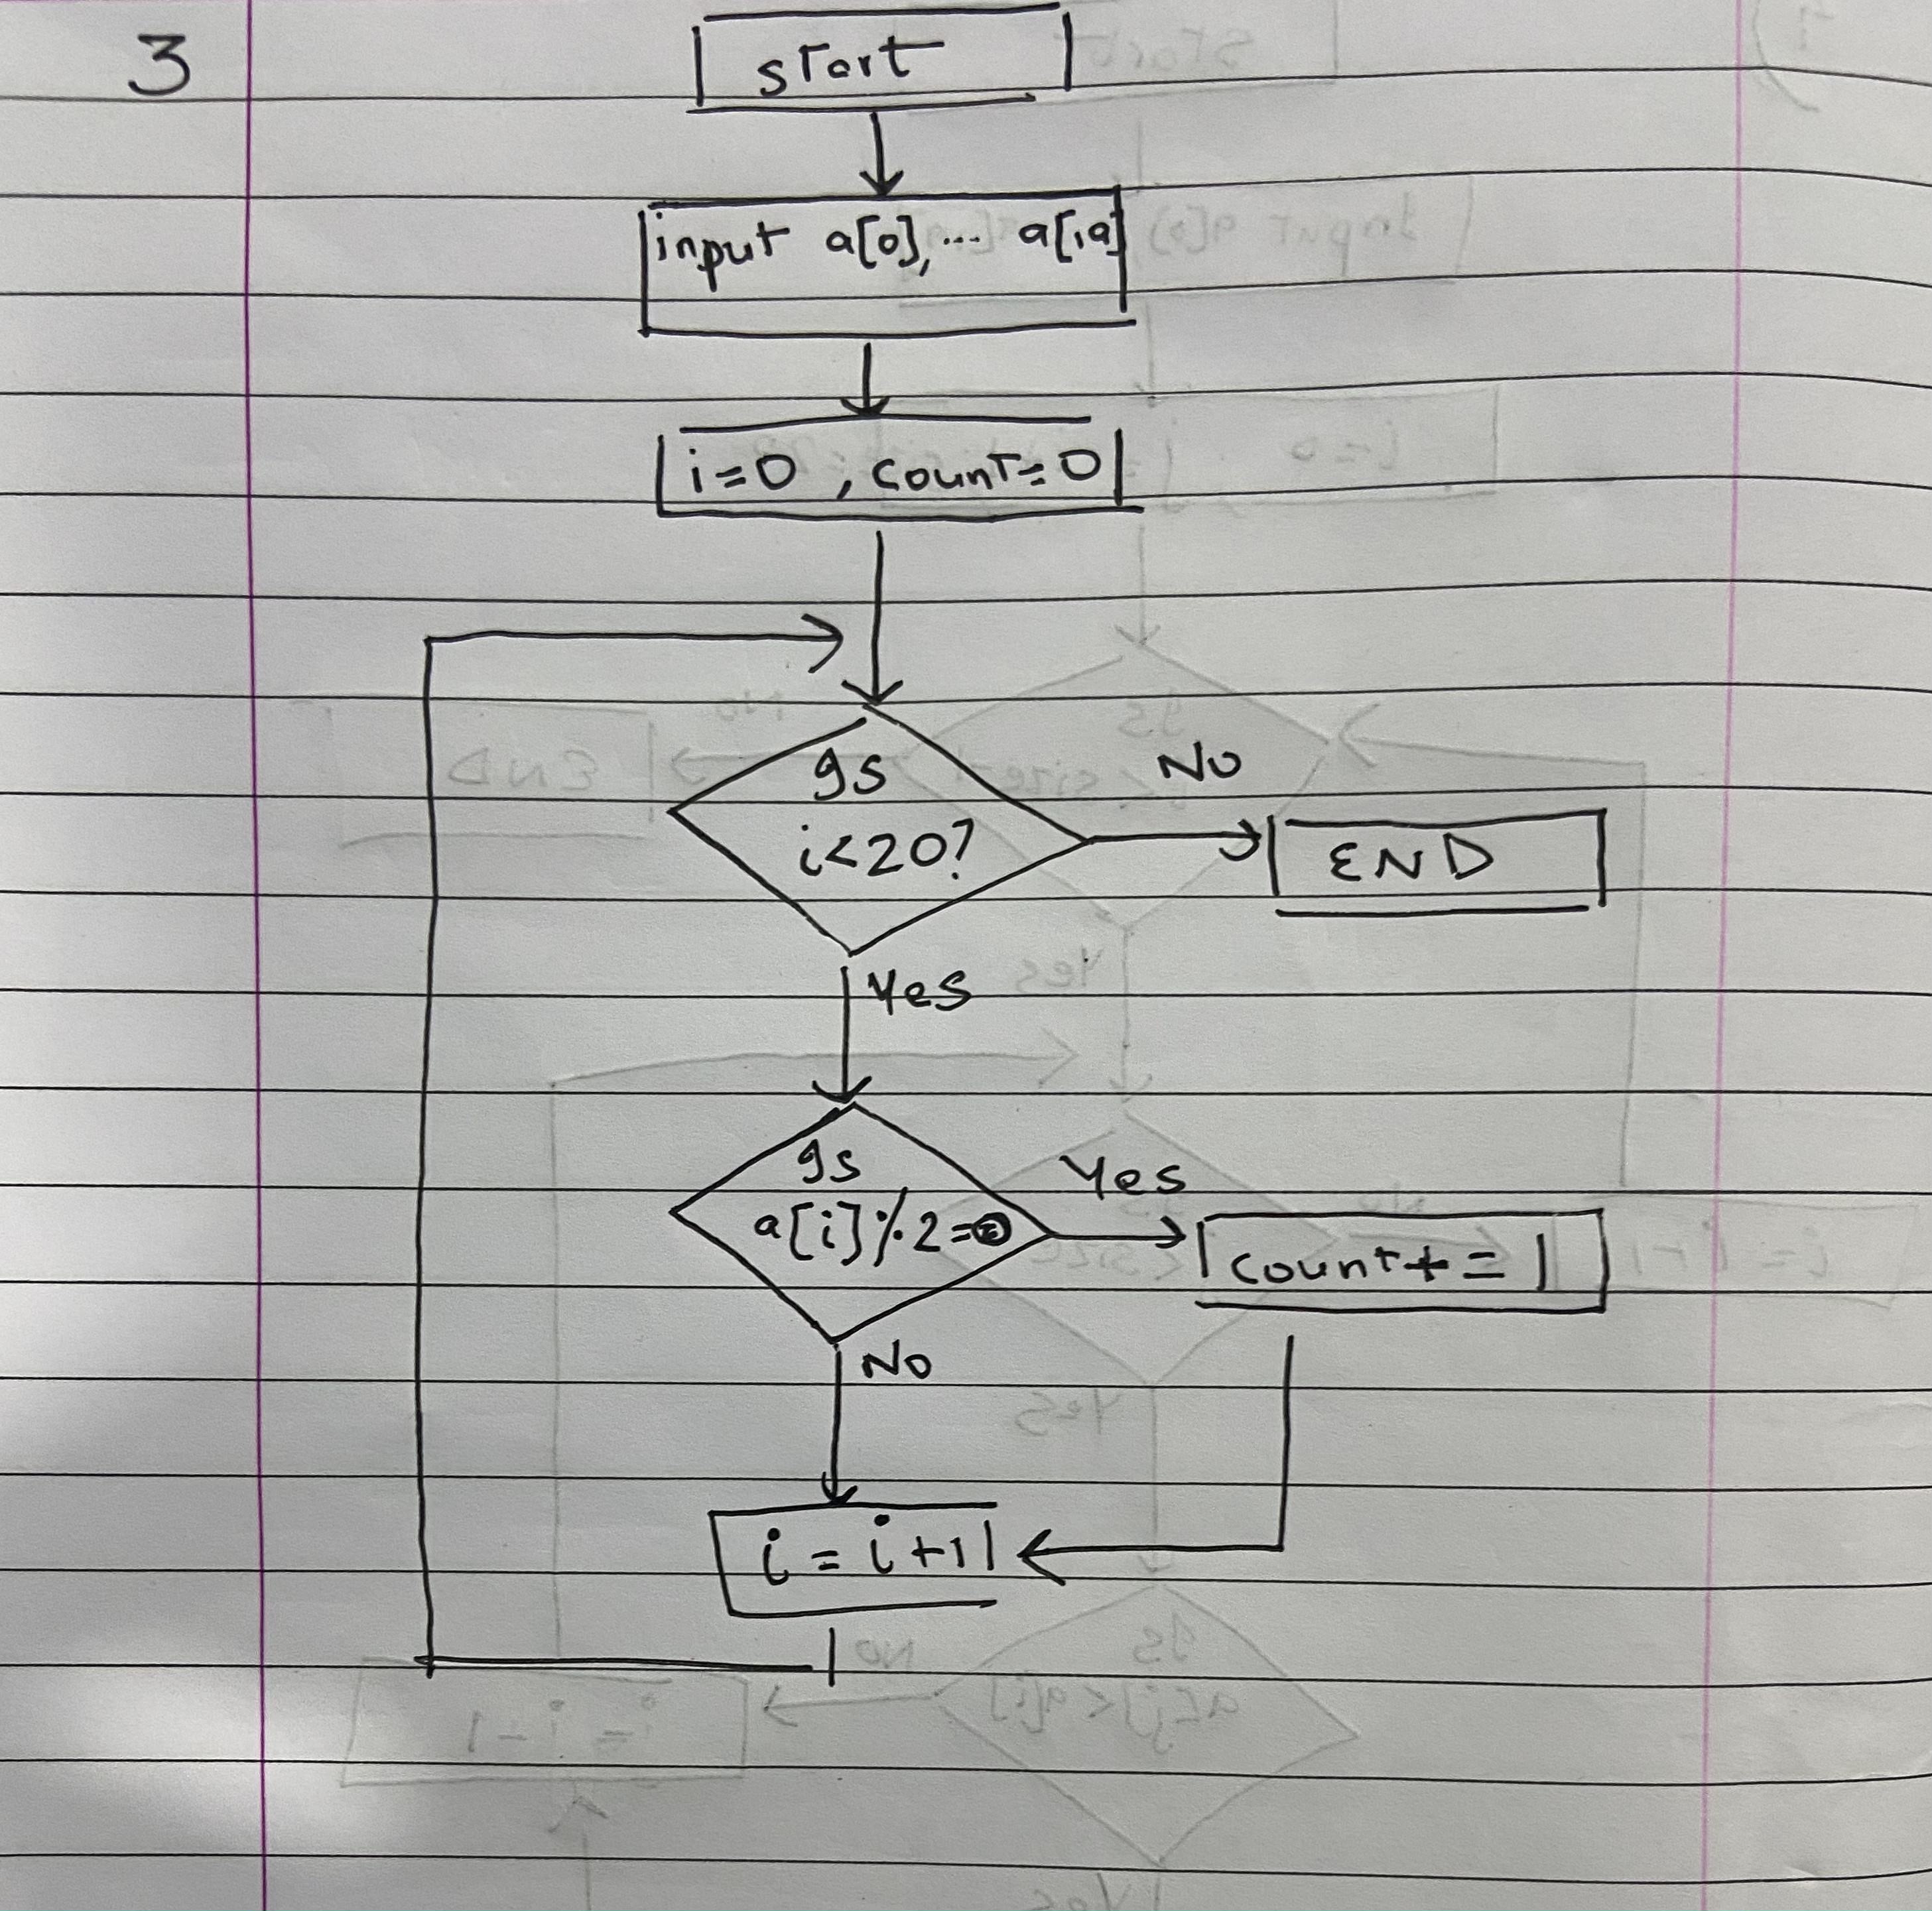 3
start
input a[0], ... a[19]
i=0 , count=0
Is
i<20?
No
END
Yes
Is
a[i]%2=
Yes
count+=1
No
i = i+1